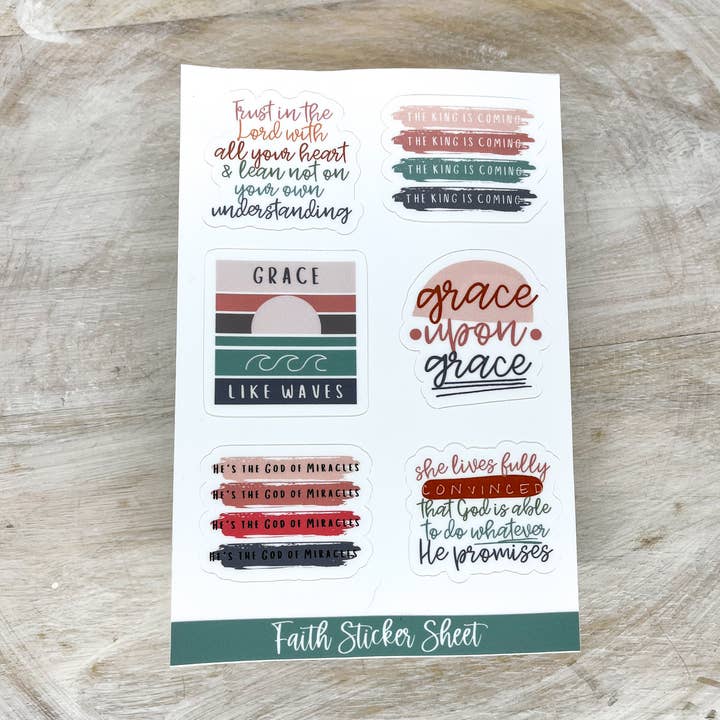 Trust in the
Lord with
all your heart
& lean not on
your own
understanding
THE KING IS COMING
THE KING IS COMING
THE KING IS COMING
THE KING IS COMING
GRACE
LIKE WAVES
grace
upon
grace
HE'S THE GOD OF MIRACLES
HE'S THE GOD OF MIRACLES
HE'S THE GOD OF MIRACLES
HE'S THE GOD OF MIRACLES
she lives fully
CONVINCED
that God is able
to do whatever
He promises
Faith Sticker Sheet